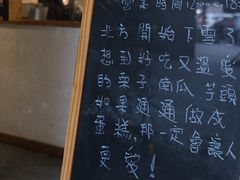 營業時間12:00-18:
北方開始下雪了
想到好吃又溫暖
的栗子、南瓜、芋頭
如果通通做成
蛋糕，那一定會讓人
更愛！